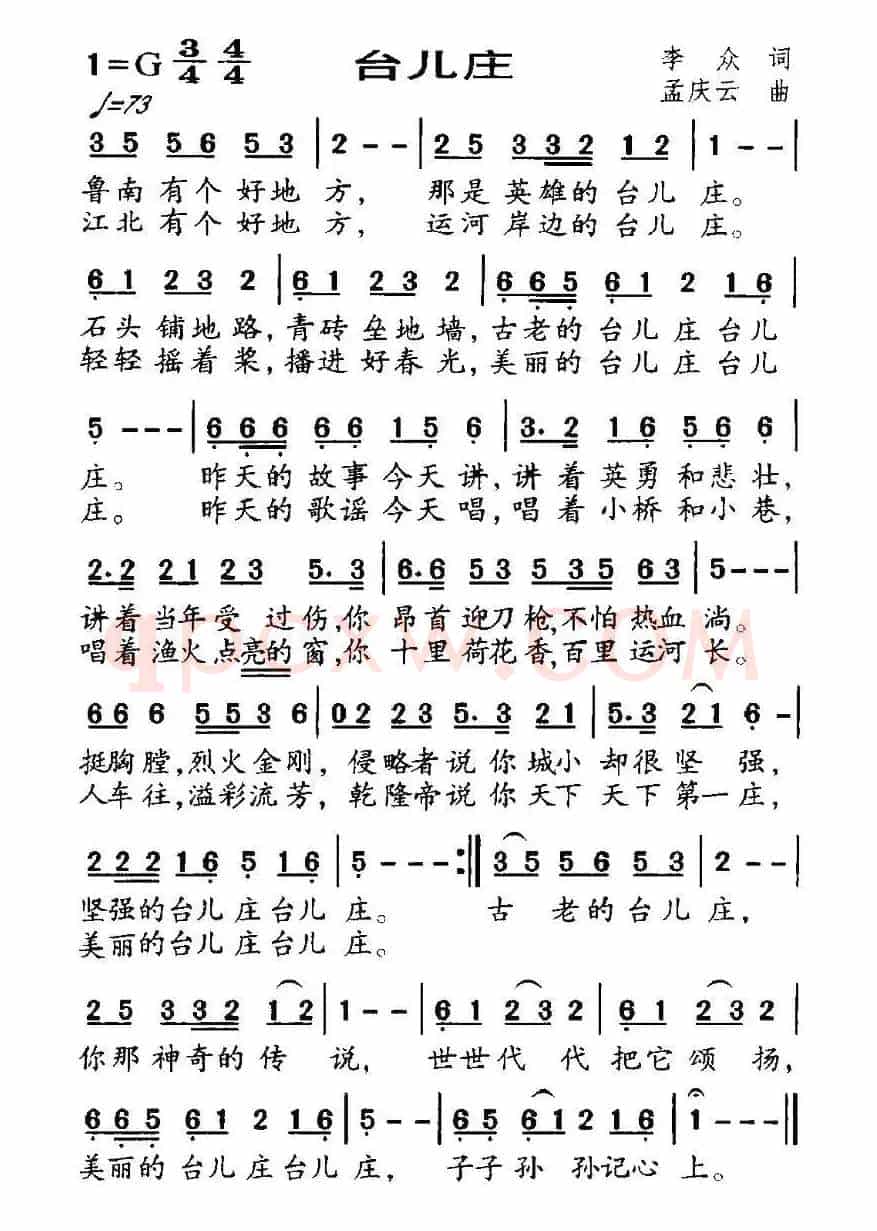 1=G 3/4 4/4 台儿庄 李众 词
♩=73 孟庆云 曲
3 5 5 6 5 3 | 2 - - | 2 5 3 3 2 1 2 | 1 - - |
鲁南有个好地方，那是英雄的台儿庄。
江北有个好地方，运河岸边的台儿庄。
6 1 2 3 2 | 6 1 2 3 2 | 6 6 5 6 1 2 1 6 |
石头铺地路，青砖垒地墙，古老的台儿庄台儿
轻轻摇着桨，播进好春光，美丽的台儿庄台儿
5 - - - | 6 6 6 6 6 1 5 6 | 3. 2 1 6 5 6 6 |
庄。昨天的故事今天讲，讲着英勇和悲壮，
庄。昨天的歌谣今天唱，唱着小桥和小巷，
2. 2 2 1 2 3 5. 3 | 6. 6 5 3 5 3 5 6 3 | 5 - - - |
讲着当年受过伤，你昂首迎刀枪，不怕热血淌。
唱着渔火点亮的窗，你十里荷花香，百里运河长。
qpoxw.com
6 6 6 5 5 3 6 | 0 2 2 3 5. 3 2 1 | 5. 3 2 1 6 - |
挺胸膛，烈火金刚，侵略者说你城小却很坚强，
人车往，溢彩流芳，乾隆帝说你天下天下第一庄，
2 2 2 1 6 5 1 6 | 5 - - - :‖ 3 5 5 6 5 3 | 2 - - |
坚强的台儿庄台儿庄。古老的台儿庄，
美丽的台儿庄台儿庄。
2 5 3 3 2 1 2 | 1 - - | 6 1 2 3 2 | 6 1 2 3 2 |
你那神奇的传说，世世代代把它颂扬，
6 6 5 6 1 2 1 6 | 5 - - | 6 5 6 1 5 6 | 1 - - - ‖
美丽的台儿庄台儿庄，子子孙孙记心上。